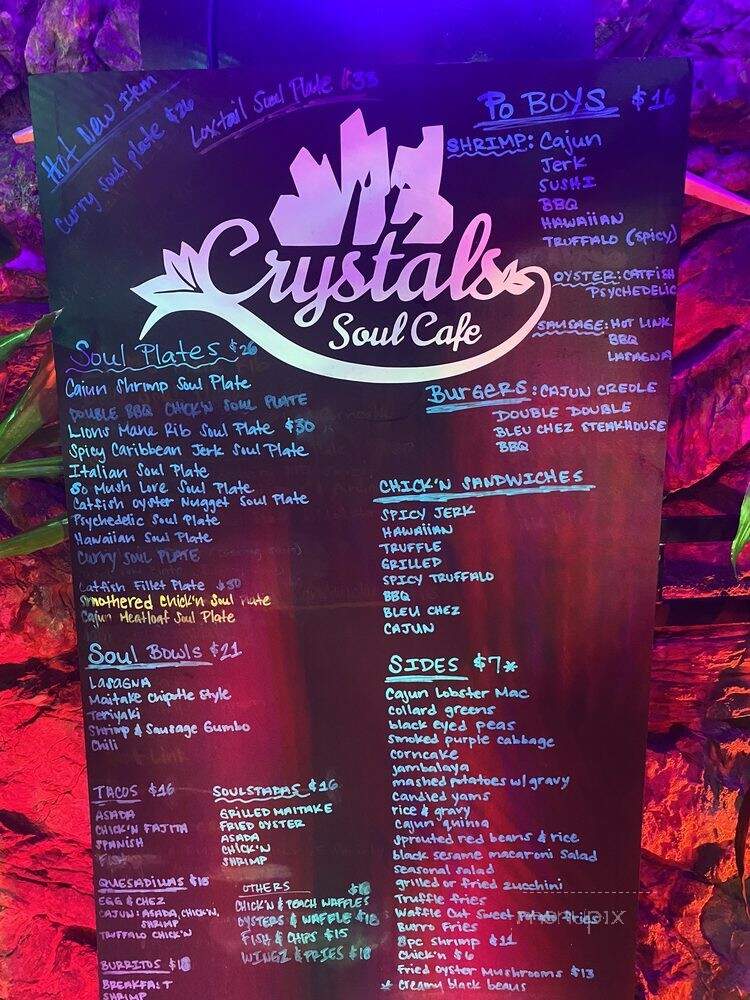 Hot New Item
Curry soul plate $26
Loxtail Soul Plate $33
Crystals
Soul Cafe
Soul Plates $26
Cajun Shrimp Soul Plate
DOUBLE BBQ CHICK'N SOUL PLATE
Lions Mane Rib Soul Plate $30
Spicy Caribbean Jerk Soul Plate
Italian Soul Plate
So Mush Love Soul Plate
Catfish Oyster Nugget Soul Plate
Psychedelic Soul Plate
Hawaiian Soul Plate
CURRY SOUL PLATE
Catfish Fillet Plate $30
Smothered Chick'n Soul Plate
Cajun Meatloaf Soul Plate
Soul Bowls $21
LASAGNA
Maitake Chipotle Style
Teriyaki
Shrimp & Sausage Gumbo
Chili
TACOS $16
ASADA
CHICK'N FAJITA
SPANISH
FISH
QUESADILLAS
EGG & CHEZ
CAJUN: ASADA, CHICK'N,
SHRIMP
TRUFFALO CHICK'N
BURRITOS
BREAKFAST
SHRIMP
SOULSTADAS $16
GRILLED MAITAKE
FRIED OYSTER
ASADA
CHICK'N
SHRIMP
OTHERS
CHICK'N & PEACH WAFFLES
OYSTERS & WAFFLE $18
FISH & CHIPS $15
WINGZ & FRIES $18
PO BOYS $16
SHRIMP: Cajun
Jerk
SUSHI
BBQ
HAWAIIAN
TRUFFALO (spicy)
OYSTER: CATFISH
PSYCHEDELIC
SAUSAGE: HOT LINK
BBQ
LASAGNA
Burgers: CAJUN CREOLE
DOUBLE DOUBLE
BLEU CHEZ STEAKHOUSE
BBQ
CHICK'N SANDWICHES
SPICY JERK
HAWAIIAN
TRUFFLE
GRILLED
SPICY TRUFFALO
BBQ
BLEU CHEZ
CAJUN
SIDES $7*
Cajun Lobster Mac
collard greens
black eyed peas
smoked purple cabbage
corncake
jambalaya
mashed potatoes w/ gravy
candied yams
rice & gravy
cajun quinoa
sprouted red beans & rice
black sesame macaroni salad
seasonal salad
grilled or fried zucchini
Truffle fries
Waffle Cut Sweet Potato
Burro Fries
8pc shrimp $11
Chick'n $6
Fried oyster Mushrooms $13
* Creamy black beans
menupix